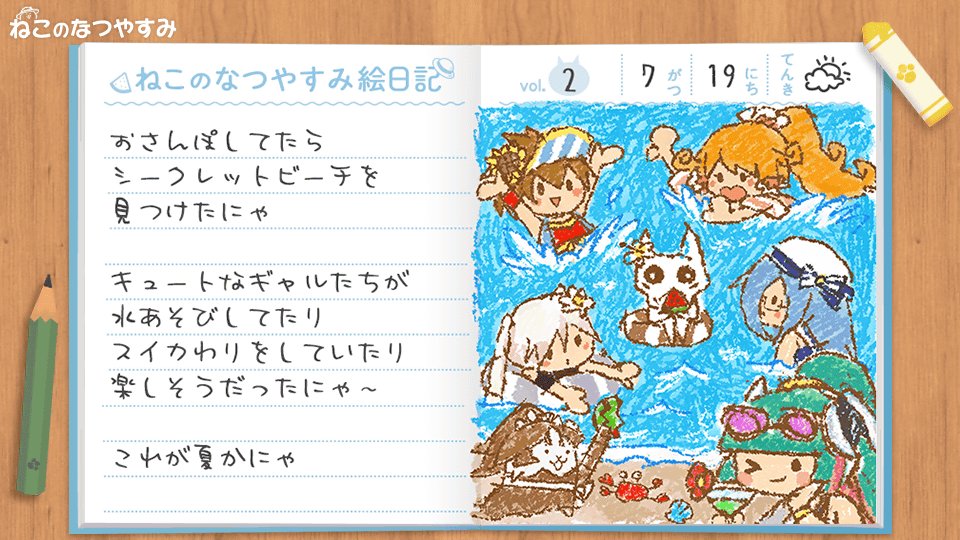 ねこのなつやすみ
ねこのなつやすみ絵日記
vol. 2
7 がつ 19 にち てんき
おさんぽしてたら
シークレットビーチを
見つけたにゃ
キュートなギャルたちが
水あそびしてたり
スイカわりをしていたり
楽しそうだったにゃ～
これが夏かにゃ